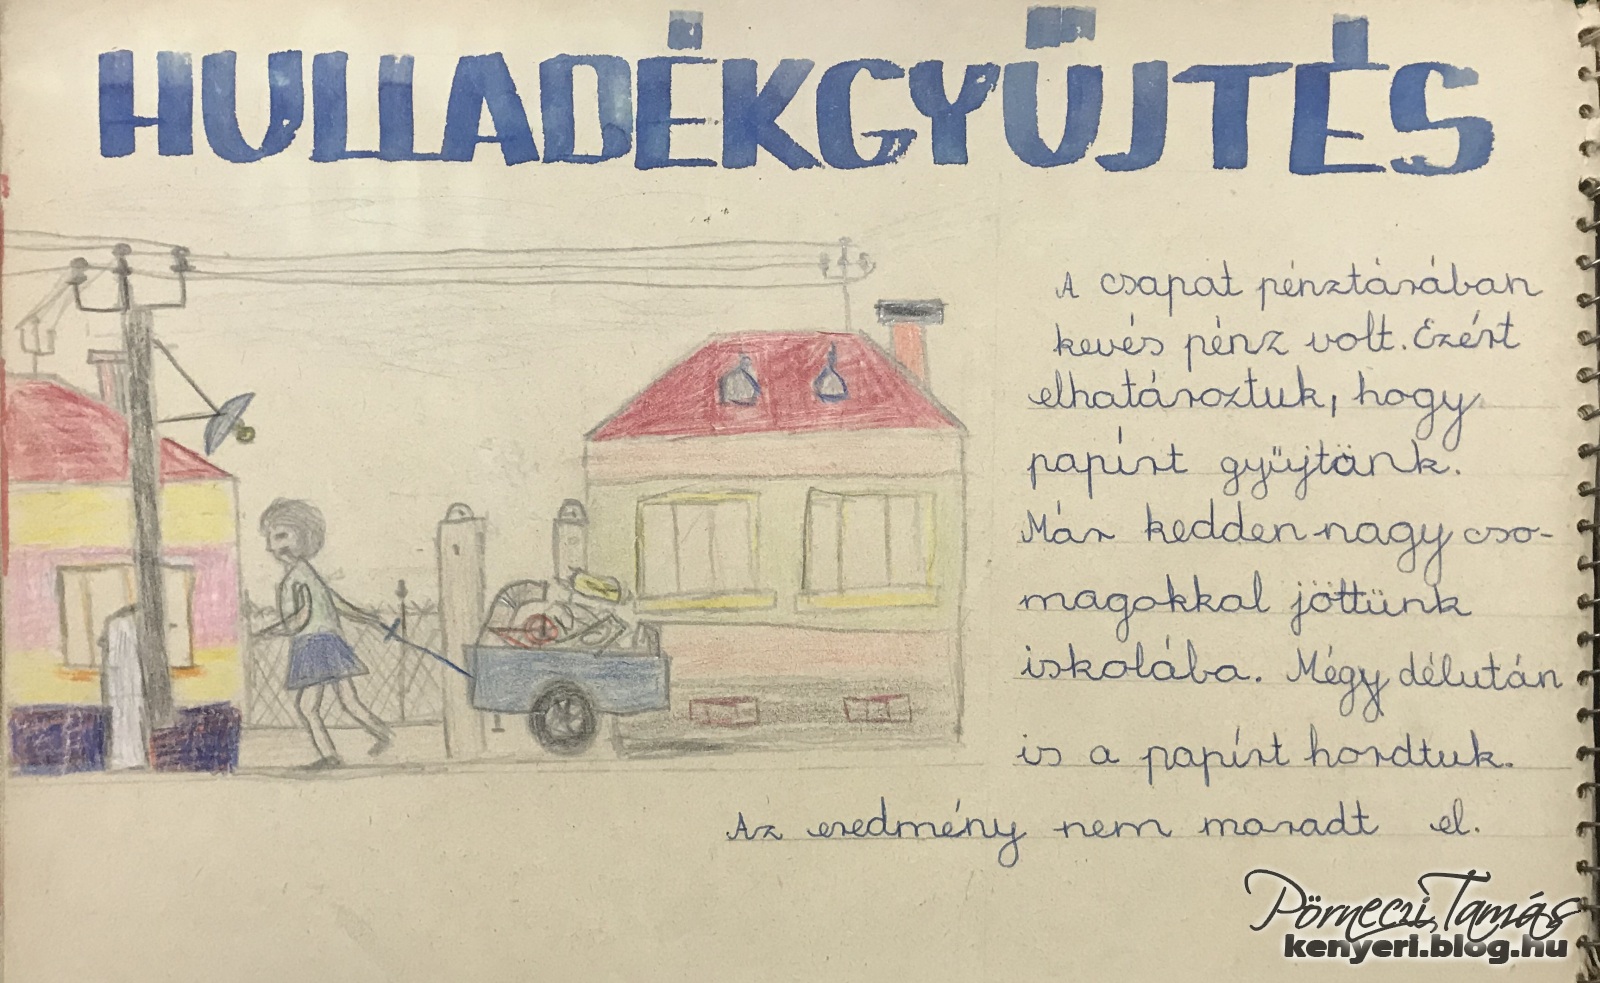 HULLADÉKGYŰJTÉS
A csapat pénztárában
kevés pénz volt. Ezért
elhatároztuk, hogy
papírt gyűjtünk.
Már kedden nagy cso-
magokkal jöttünk
iskolába. Mégy délután
is a papírt hordtuk.
Az eredmény nem maradt el.
Pörneczi Tamás
kenyeri.blog.hu